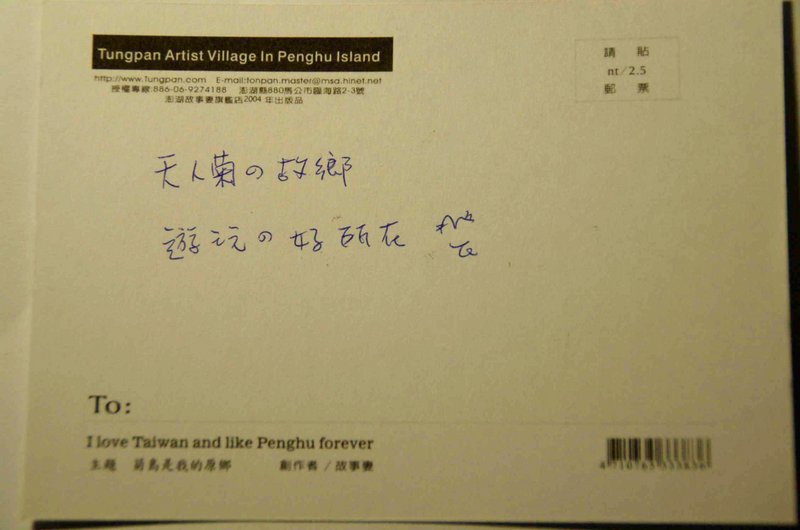 Tungpan Artist Village In Penghu Island
http://www.Tungpan.com E-mail:tonpan.master@msa.hinet.net
授權專線:886-06-9274188 澎湖縣880馬公市臨海路2-3號
澎湖故事妻旗艦店2004年出版品
請貼
nt/2.5
郵票
天人菊の故鄉
遊玩の好所在
To:
I love Taiwan and like Penghu forever
主題 菊島是我的原鄉 創作者/故事妻